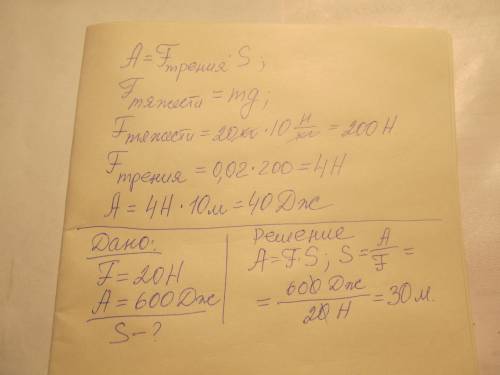 A = Fтрения · S;
Fтяжести = mg;
Fтяжести = 20 кг · 10 Н/кг = 200 Н
Fтрения = 0,02 · 200 = 4Н
A = 4Н · 10м = 40 Дж
Дано:
F = 20Н
A = 600 Дж
S – ?
Решение
A = F · S; S = A/F =
= 600 Дж / 20 Н = 30 м.